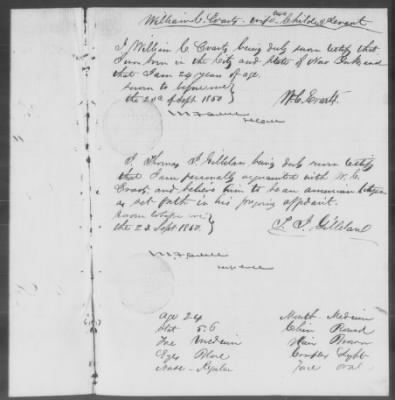 William C. Evarts wife Child & Servant
I William C. Evarts being duly sworn certify that
I was born in the City and State of New York and
that I am 24 years of age.
Sworn to before me
the 22d of Sept 1860 W. C. Evarts
I, Thomas J. Gillelan being duly sworn certify
that I am personally acquainted with W. C.
Evarts and believe him to be an american Citizen
as set forth in his forgoing affidavit.
Sworn to before me
the 22 Sept 1860. T. J. Gillelan
Age 24 Mouth - Medium
Stat 5.6 Chin Round
Fore medium Hair Brown
Eyes Blue Complex Light
Nose - Regular Face oval